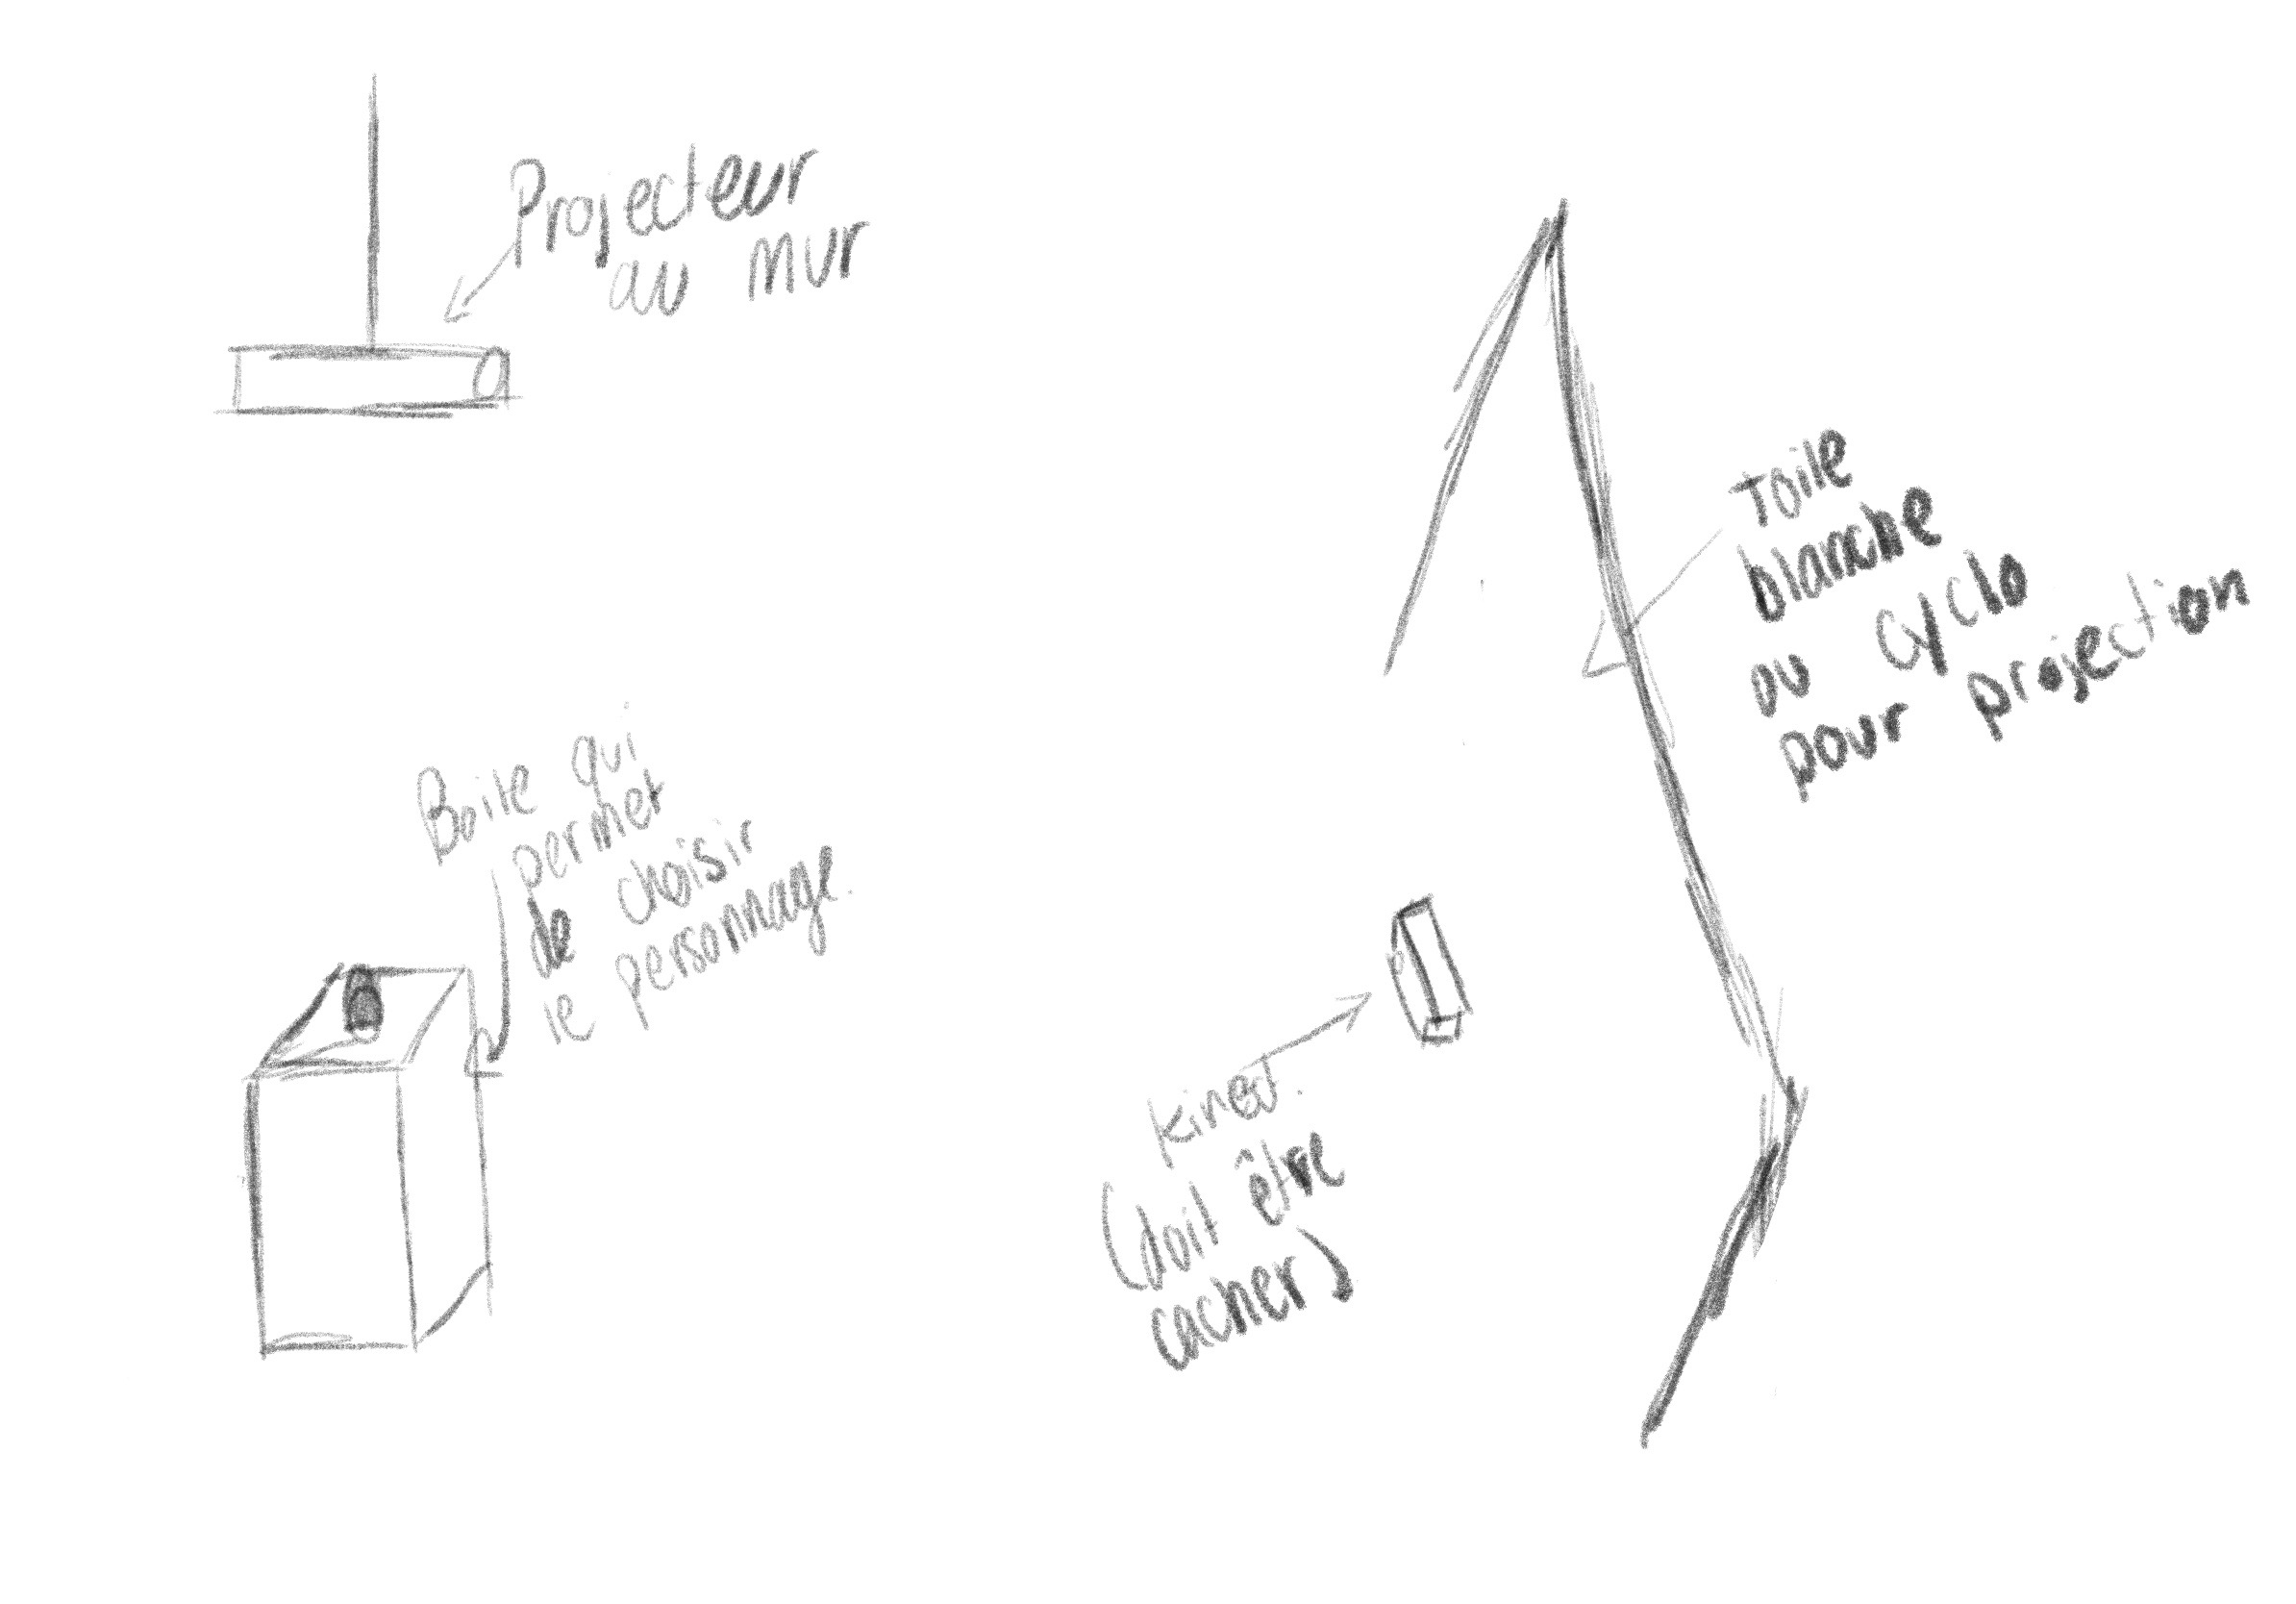 Projecteur
au mur
Toile
blanche
ou cyclo
pour projection
Boite qui
permet
de choisir
le personnage.
Kinect.
(doit être
cacher)